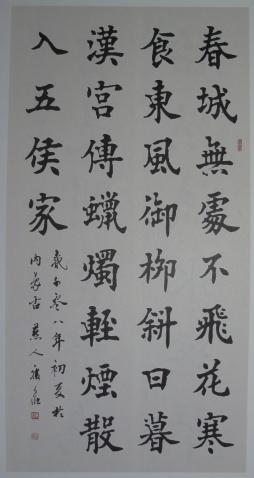 春城無處不飛花寒
食東風御栁斜日暮
漢宮傳蠟燭輕煙散
入五侯家
貳千零八年初夏於
內蒙古